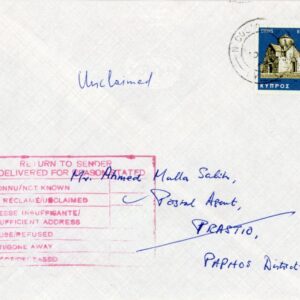 Unclaimed
ΚΥΠΡΟΣ
RETURN TO SENDER
DELIVERED FOR REASON STATED
ONNU/NOT KNOWN
RÉCLAMÉ/UNCLAIMED
ESSE INSUFFISANTE/
SUFFICIENT ADDRESS
USE/REFUSED
TI/GONE AWAY
Mr. Ahmed Mulla Salih,
Postal Agent,
PRASTIO,
PAPHOS District